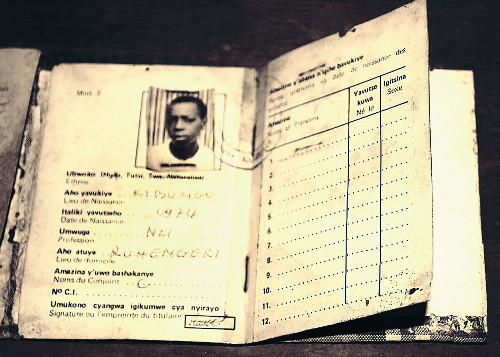 Ubwoko (Hutu, Tutsi, Twa, Naturalisé)
Ethnie
Aho yavukiye
Lieu de Naissance
Italiki yavutseho 1974
Date de Naissance
Umwuga
Profession
Aho atuye RUHENGERI
Lieu de domicile
Amazina y'uwo bashakanye
Noms du Conjoint
No C.I.
Umukono cyangwa igikumwe cya nyirayo
Signature ou l'empreinte du titulaire
Amazina y'abana n'igihe bavukiye
Noms, prénoms et date de naissance des
enfants
Amazina
Noms et Prénoms
Yavutse
kuwa
Né le
Igitsina
Sexe
1.
2.
3.
4.
5.
6.
7.
8.
9.
10.
11.
12.